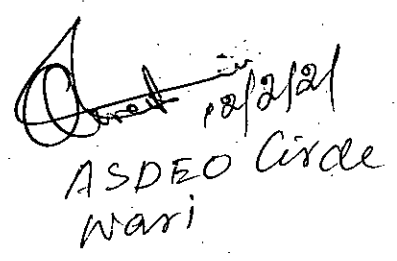 12/2/21
ASDEO Circle
Wari